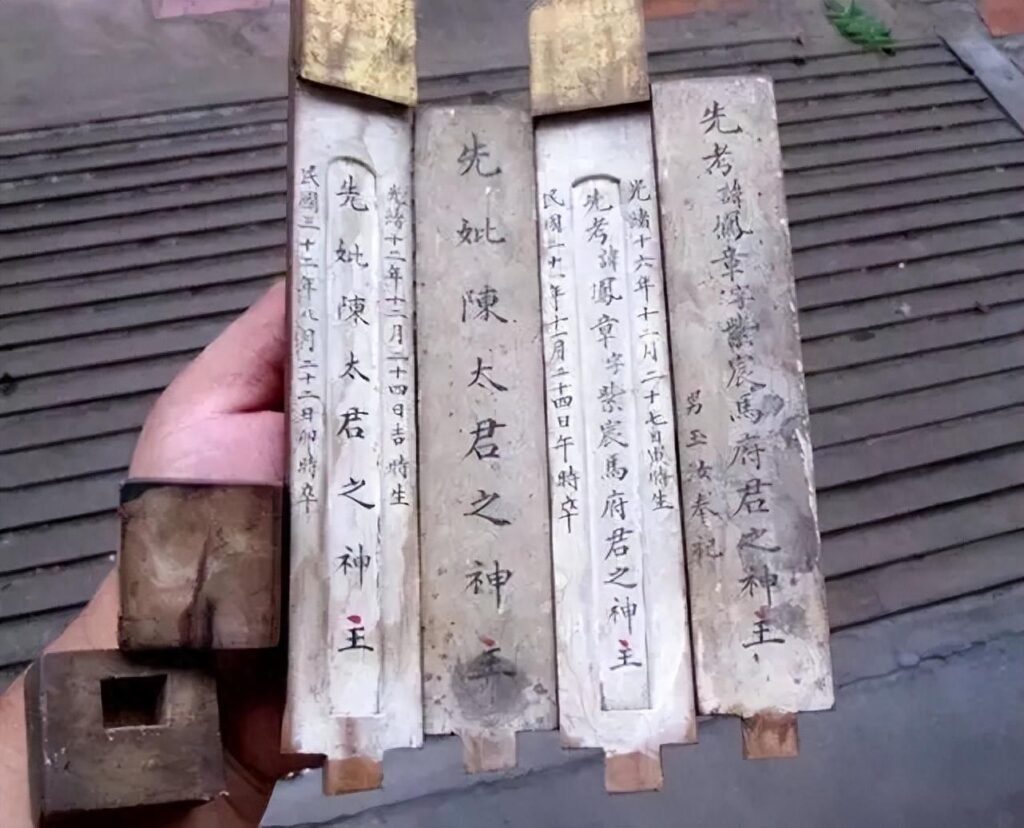 先考諱鳳章字紫宸馬府君之神主
男玉汝奉祀
光緒十六年十二月二十七日時生
先考諱鳳章字紫宸馬府君之神主
民國三十一年十一月二十四日午時卒
先妣陳太君之神主
光緒十二年十二月二十四日吉時生
先妣陳太君之神主
民國三十二年八月二十二日卯時卒